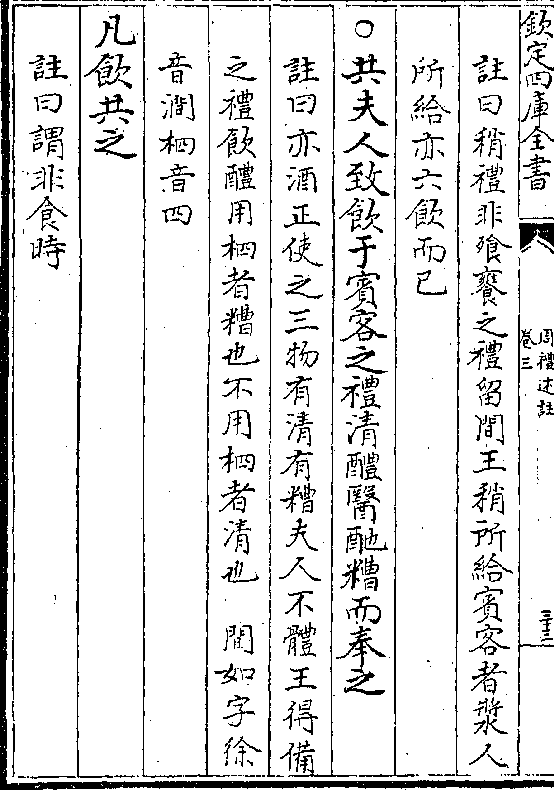 欽定四庫全書
周禮述註
卷三
三十三
註曰稍禮非飱饔之禮留間王稍所給賓客者漿人
所給亦六飲而已
○共夫人致飲于賓客之禮清醴醫酏糟而奉之
註曰亦酒正使之三物有清有糟夫人不體王得備
之禮飲醴用柶者糟也不用柶者清也　間如字徐
音澗柶音四
凡飲共之
註曰謂非食時